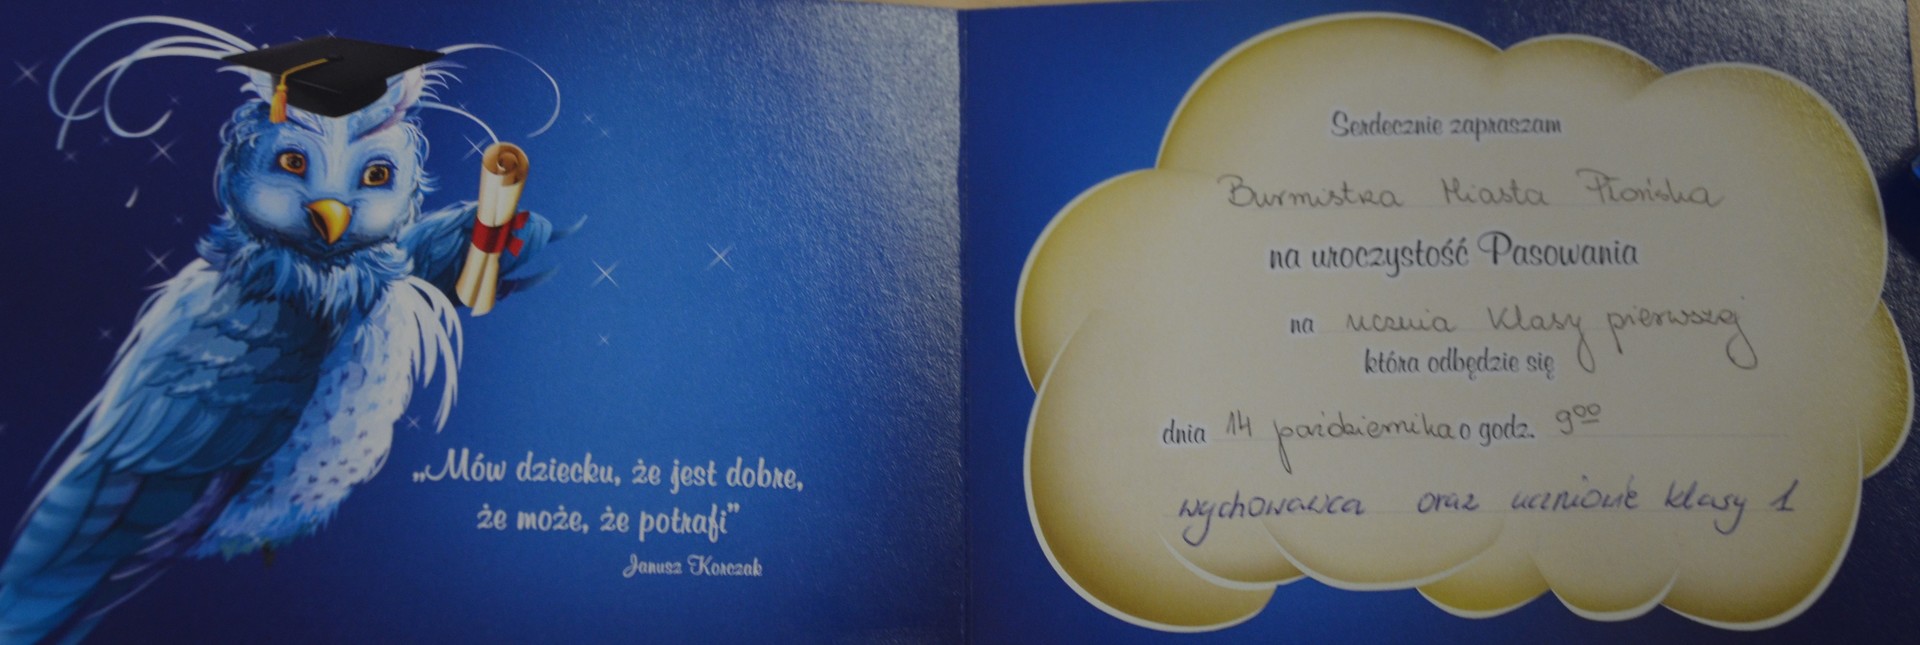 „Mów dziecku, że jest dobre,
że może, że potrafi”
Janusz Korczak
Serdecznie zapraszam
Burmistrza Miasta Płońska
na uroczystość Pasowania
na ucznia klasy pierwszej
która odbędzie się
dnia 14 października o godz. 9⁰⁰
wychowawca oraz uczniowie klasy 1